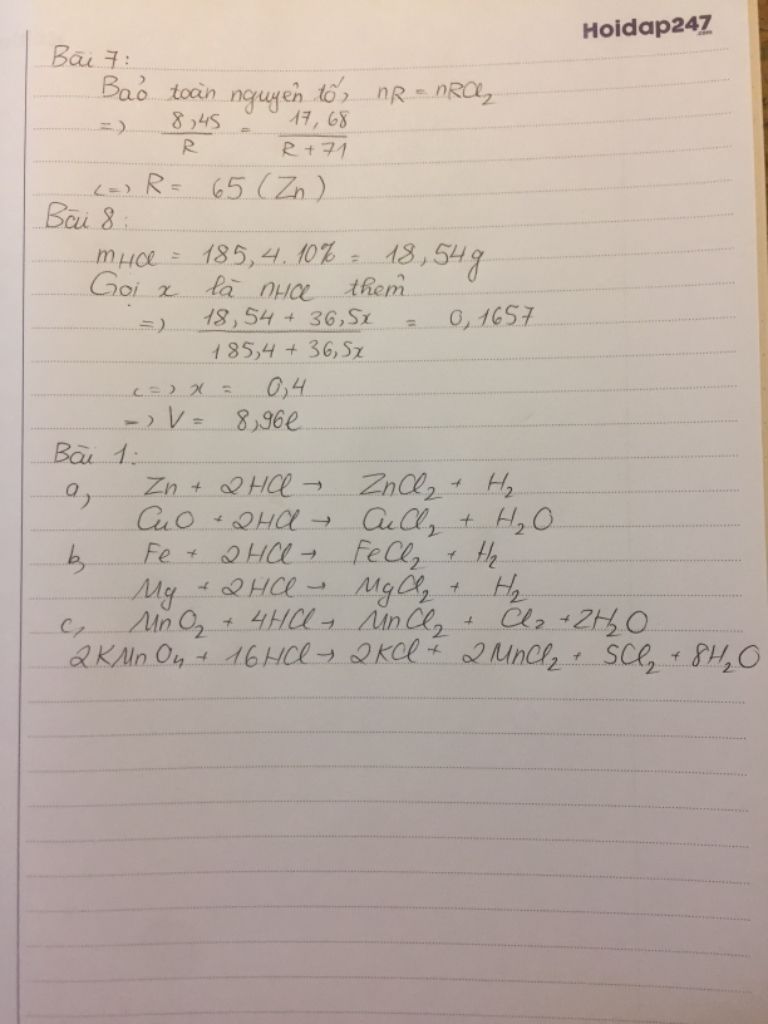 Hoidap247
.com
Bài 7:
Bảo toàn nguyên tố, nR = nRCl₂
=> 8,45/R = 17,68/(R + 71)
<=> R = 65 (Zn)
Bài 8:
mHCl = 185,4.10% = 18,54g
Gọi x là nHCl thêm
=> (18,54 + 36,5x)/(185,4 + 36,5x) = 0,1657
<=> x = 0,4
=> V = 8,96l
Bài 1:
a, Zn + 2HCl → ZnCl₂ + H₂
CuO + 2HCl → CuCl₂ + H₂O
b, Fe + 2HCl → FeCl₂ + H₂
Mg + 2HCl → MgCl₂ + H₂
c, MnO₂ + 4HCl → MnCl₂ + Cl₂ + 2H₂O
2KMnO₄ + 16HCl → 2KCl + 2MnCl₂ + 5Cl₂ + 8H₂O